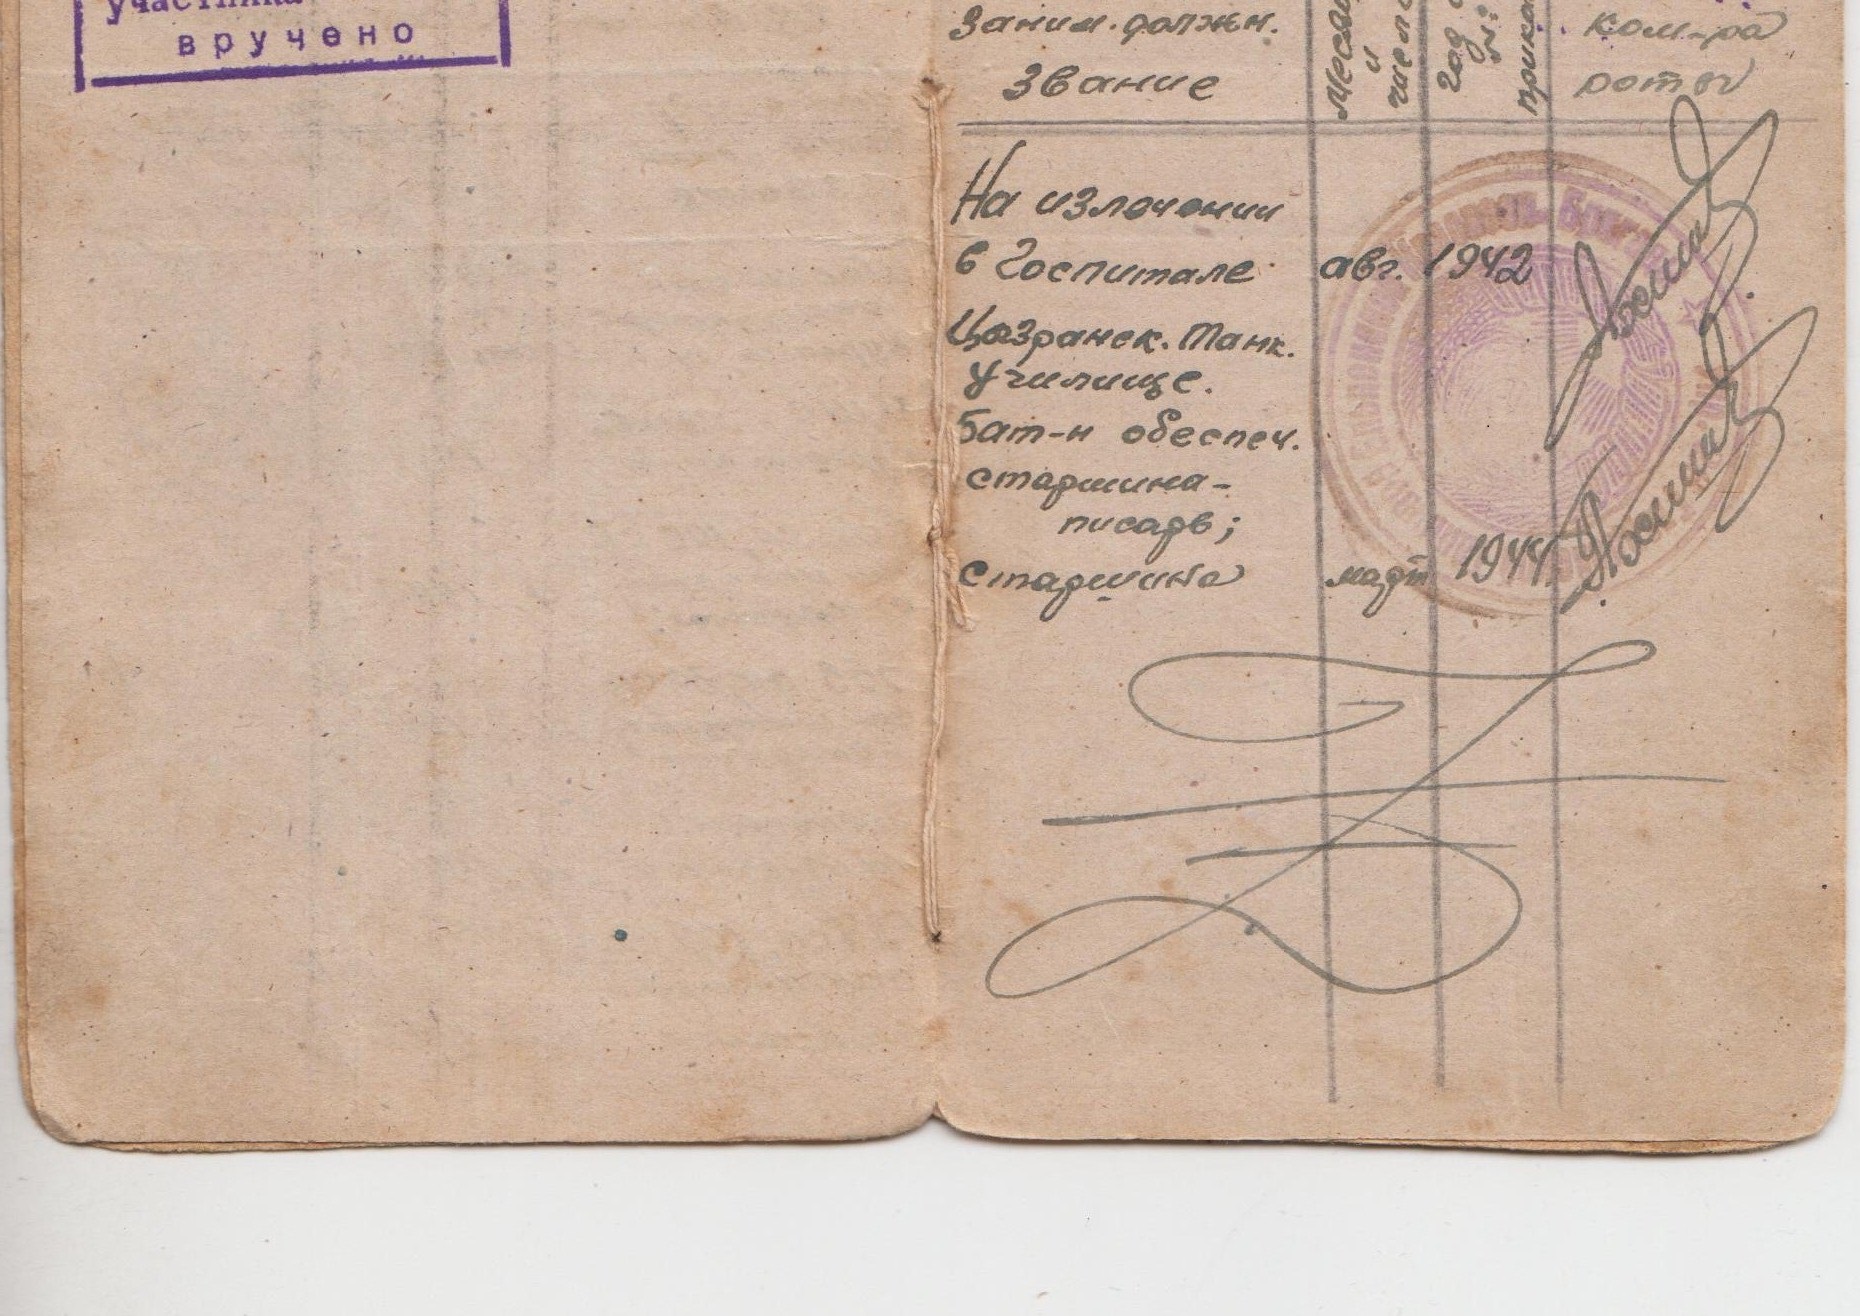 участника
вручено
Заним. должн.
Звание
Месяц
и
число
Год
№
прика
ком-ра
роты
На излечении
в Госпитале авг. 1942
Цызранск. Танк.
Училище.
Бат-н обеспеч.
старшина-
писарь;
Старшина март 1944